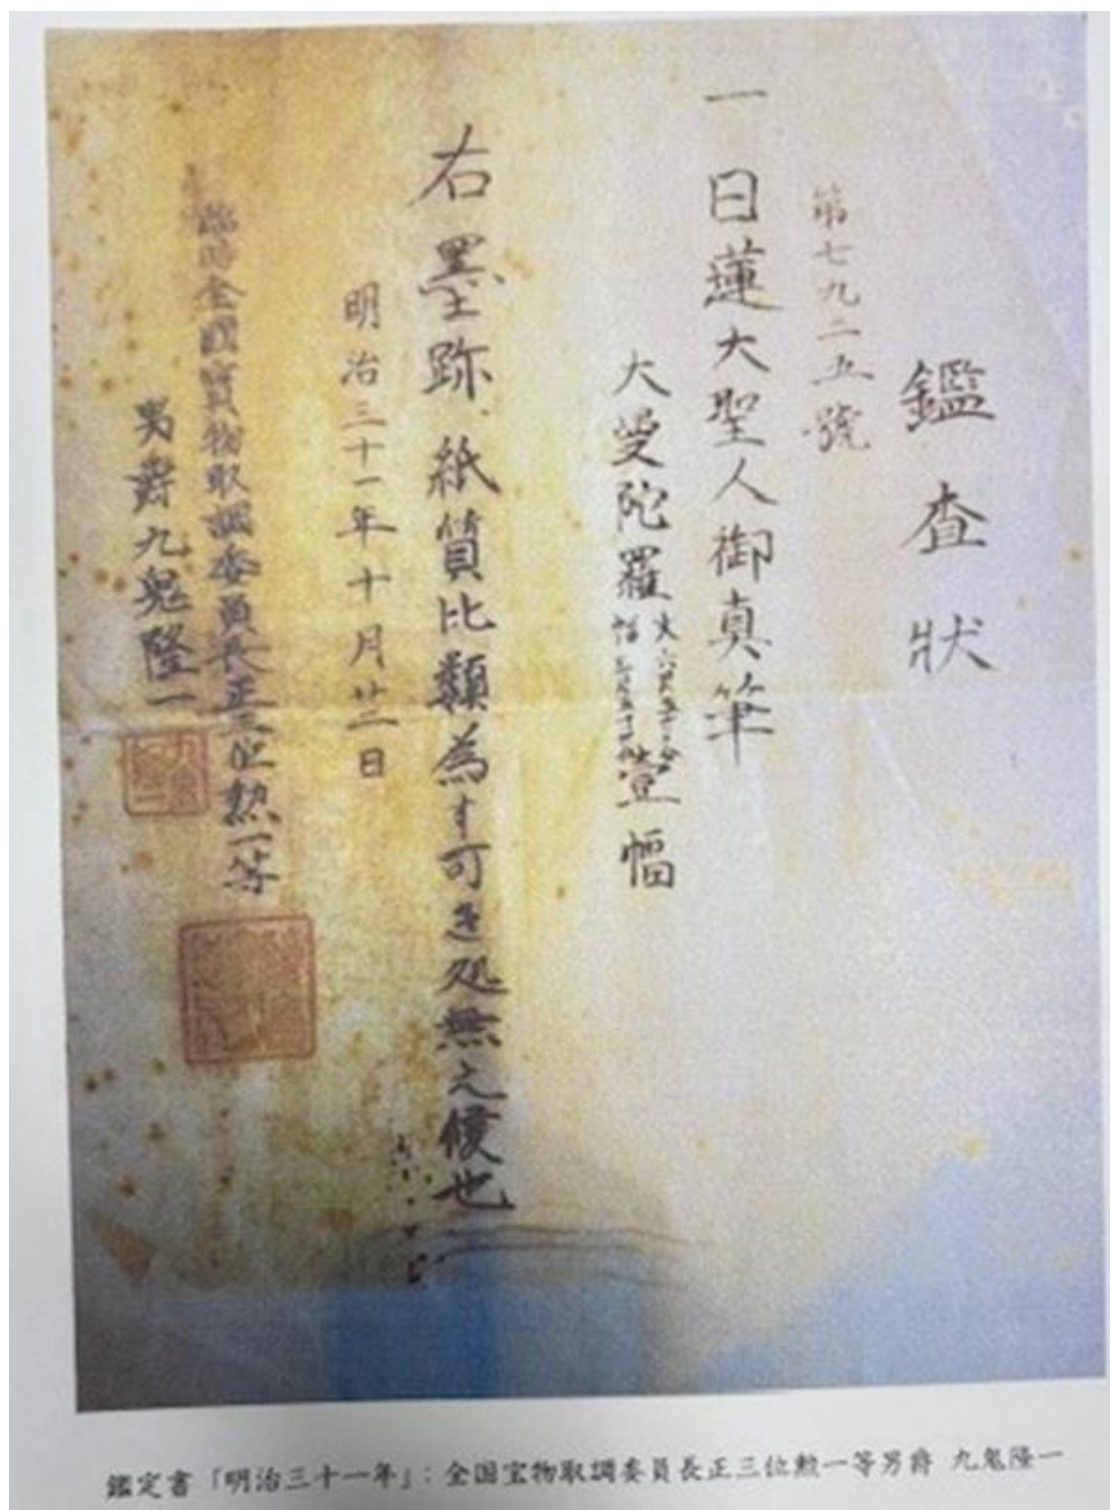 鑑査狀
第七九二五號
一日蓮大聖人御真筆
大曼陀羅 壹幅
右墨跡、紙質比類為す可き処無之候也
明治三十一年十月廿二日
臨時全國寳物取調委員長正三位勲一等
男爵九鬼隆一
鑑定書「明治三十一年」:全国宝物取調委員長正三位勲一等男爵 九鬼隆一